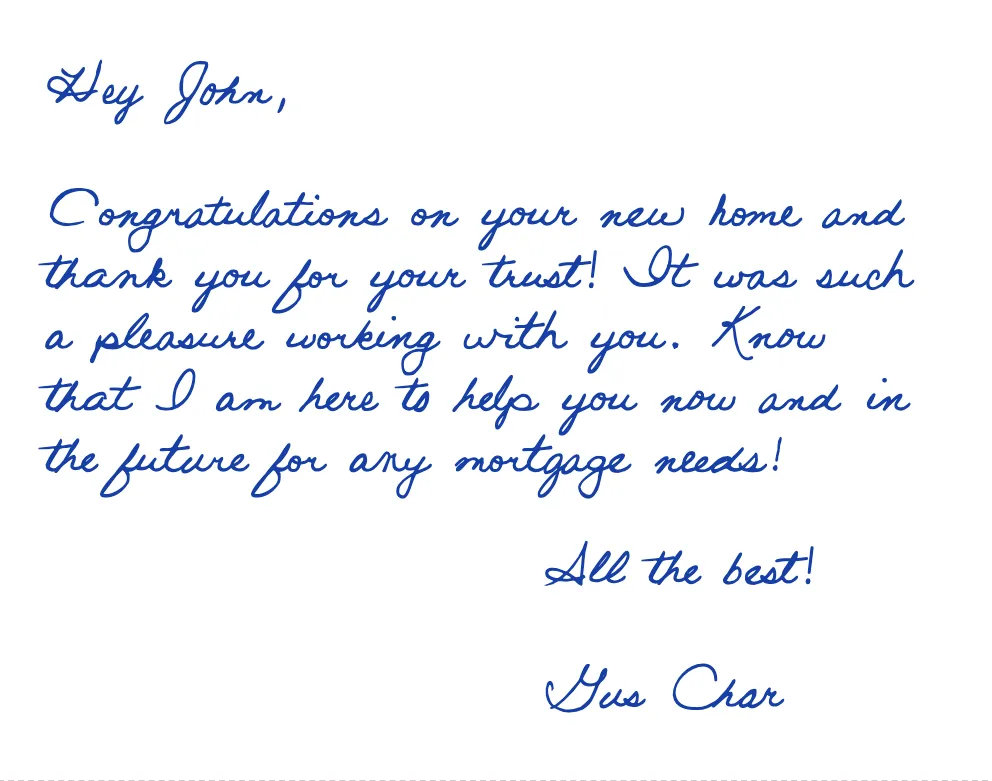 Hey John,
Congratulations on your new home and
thank you for your trust! It was such
a pleasure working with you. Know
that I am here to help you now and in
the future for any mortgage needs!
All the best!
Gus Char